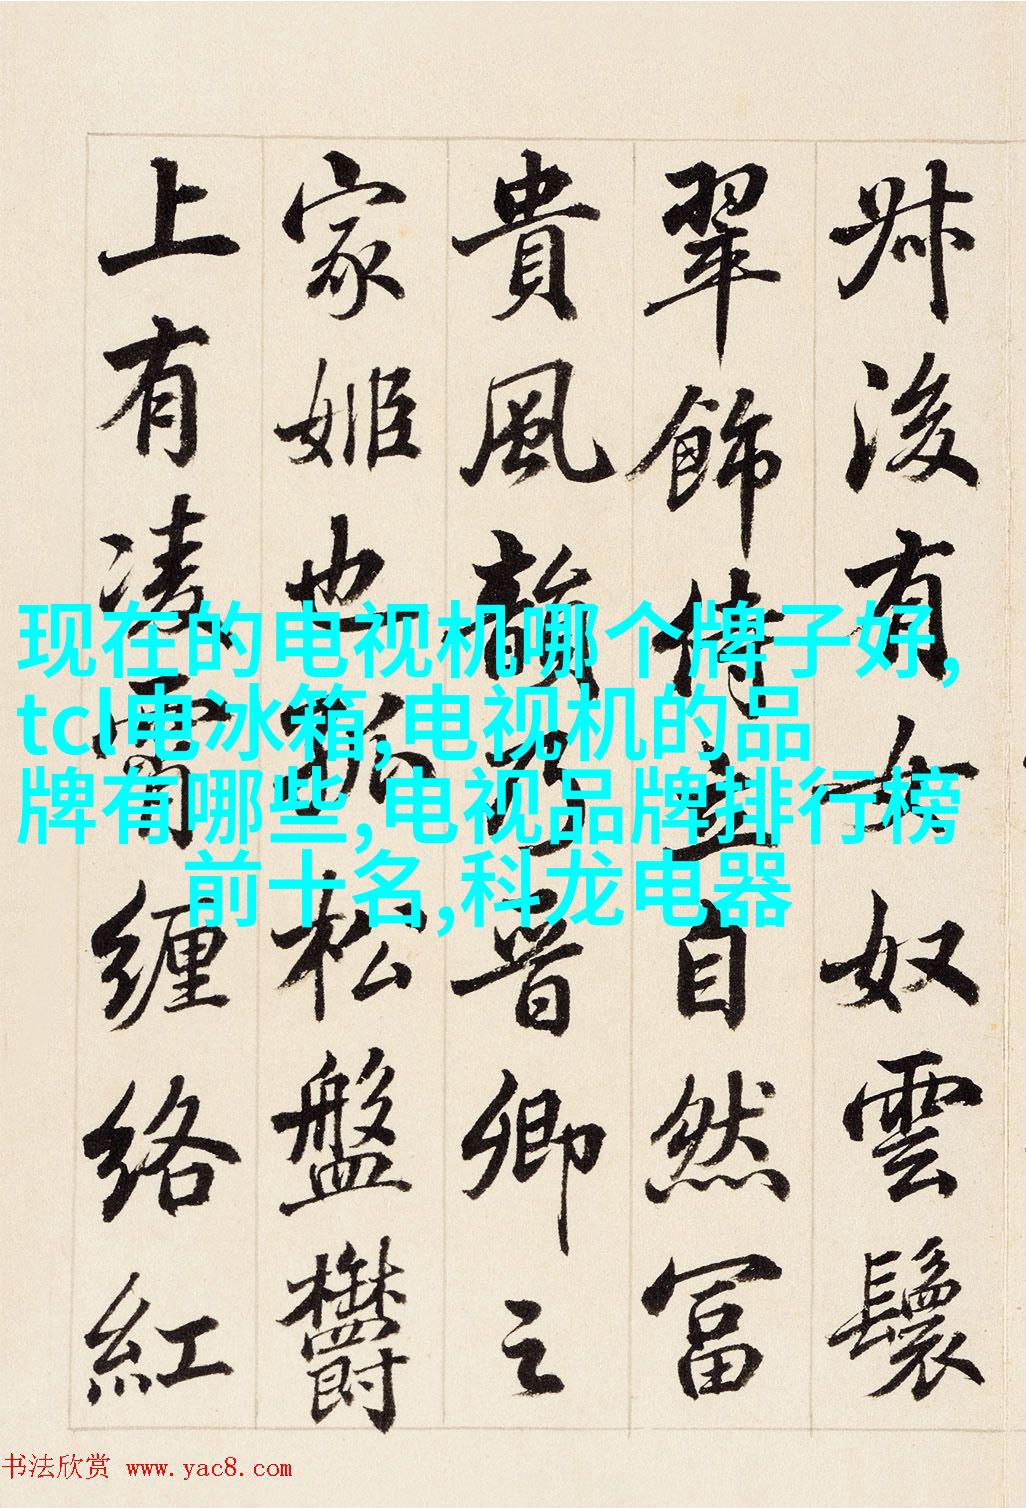 叔後有女奴雲鬟
翠飾侍立自然富
貴風韻乃晉卿之
家姬也孤松盤鬱
上有凌霄纏絡紅
现在的电视机哪个牌子好,
tcl电冰箱,电视机的品
牌有哪些,电视品牌排行榜
前十名,科龙电器
书法欣赏 www.yac8.com